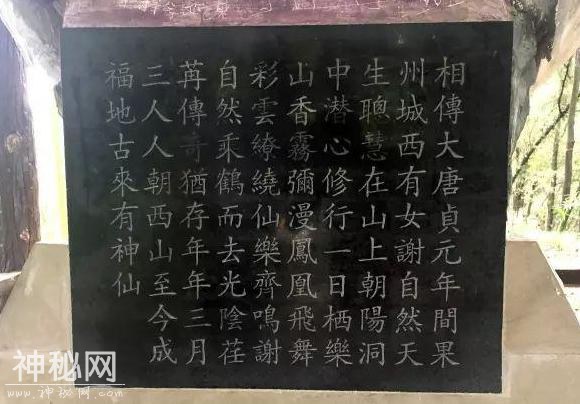 相傳大唐貞元年間果
州城西有女謝自然天
生聰慧在山上朝陽洞
中潜心修行一日栖樂
山香霧彌漫鳳凰飛舞
彩雲繚繞仙樂齊鳴謝
自然乘鶴而去光陰荏
苒傳奇猶存年年三月
三人人朝西山至今成
福地古來有神仙
神秘网
www.神秘网.com